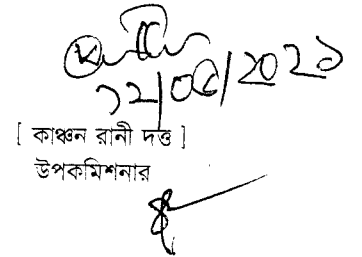 ১২/০৫/২০২১
[ কাঞ্চন রানী দত্ত ]
উপকমিশনার